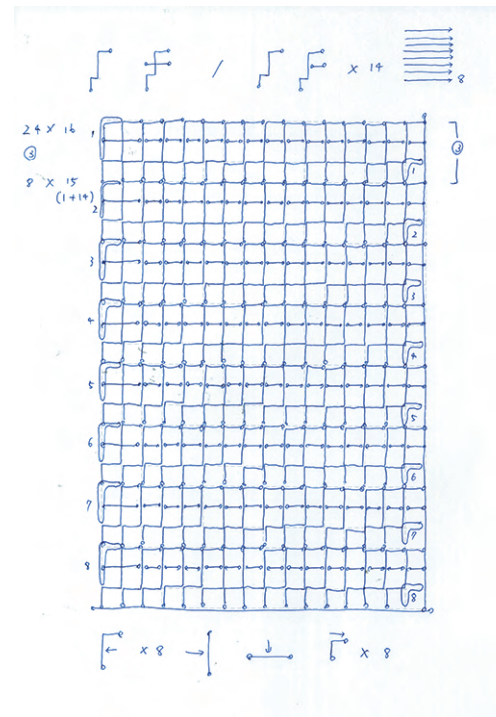 / × 14
8
24 × 16
③
8 × 15
(1+14)
1
2
3
4
5
6
7
8
③
1
2
3
4
5
6
7
8
× 8
× 8